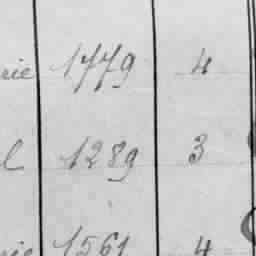 rie 1779 4
l 1289 3
rie 1561 4